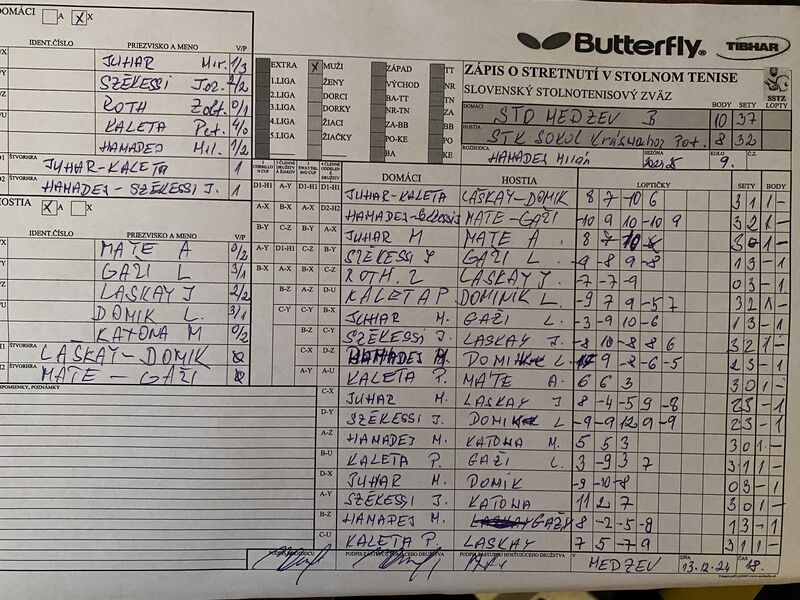 DOMÁCI A X X
IDENT.ČÍSLO PRIEZVISKO A MENO V/P
JUHAR Mir. 1/3
SZÉKESSI Joz. 2/2
ROTH Zolt. 0/1
KALETA Pet. 4/0
HAMADEJ Mil. 1/2
ŠTVORHRA JUHAR-KALETA 1
ŠTVORHRA HAMADEJ-SZÉKESSI J. 1
HOSTIA X A X
IDENT.ČÍSLO PRIEZVISKO A MENO V/P
MATE A 0/2
GAŽI L 3/1
LASKAY J 2/2
DOMIK L. 3/1
KATONA M 0/2
ŠTVORHRA LASKAY-DOMIK
ŠTVORHRA MATE GAŽI
PRIPOMIENKY, POZNÁMKY
Butterfly TIBHAR
EXTRA X MUŽI ZÁPAD TT
1.LIGA ŽENY VÝCHOD NR
2.LIGA DORCI BA-TT TN
3.LIGA DORKY NR-TN ZA
4.LIGA ŽIACI ZA-BB BB
5.LIGA ŽIAČKY PO-KE PO
BA KE
ZÁPIS O STRETNUTÍ V STOLNOM TENISE
SLOVENSKÝ STOLNOTENISOVÝ ZVÄZ SSTZ
BODY SETY LOPTY
DOMÁCI STO MEDZEV B 10 37
HOSTIA STK SOKOL Krásnohor Pot. 8 32
ROZHODCA HAMADEJ Milan SEZÓNA KOLO 9. Č.
DOMÁCI HOSTIA LOPTIČKY SETY BODY
D1-H1 A-Y D1-H1 D1-H1 JUHAR-KALETA LASKAY-DOMIK 8 7 -10 6 3 1 1 -
A-X B-X A-X D2-H2 HAMADEJ-Székessi MATE-GAŽI -10 9 10 -10 9 3 2 1 -
B-Y C-Z B-Y A-X JUHAR M MATE A. 8 7 10
A-Y D1-H1 C-Z B-Y SZÉKESSI J GAŽI L -9 -8 9 -8 1 3 - 1
B-X A-X B-X C-Z ROTH. Z LASKAY J. -7 -7 -9 0 3 - 1
B-Z A-Z D-U KALETA P. DOMINIK L. -9 7 9 -5 7 3 2 1 -
C-Y C-Y B-X JUHAR M. GAŽI L. -3 -9 10 -6 1 3 - 1
B-Z C-Y SZÉKESSI J. LASKAY J. -8 10 -8 8 6 3 2 1 -
C-X D-Z HAMADEJ M. DOMIK L. 9 -8 -6 -5 2 3 - 1
A-Y A-U KALETA P. MATE A. 6 6 3 3 0 1 -
C-X JUHAR M. LASKAY J 8 -4 -5 9 -8 2 3 - 1
D-Y SZÉKESSI J. DOMIK L -9 -9 12 9 -9 2 3 - 1
A-Z HAMADEJ M. KATONA M. 5 5 3 3 0 1 -
B-U KALETA P. GAŽI L. 3 -9 3 7 3 1 1 -
D-X JUHAR M. DOMIK -9 -10 -8 0 3 - 1
A-Y SZÉKESSI J. KATONA 11 2 7 3 0 1 -
B-Z HAMADEJ M. GAŽY 8 -2 -5 -8 1 3 - 1
C-U KALETA P. LASKAY 7 5 -7 9 3 1 1 -
PODPIS ROZHODCU PODPIS ZÁSTUPCU DOMÁCEHO DRUŽSTVA PODPIS ZÁSTUPCU HOSŤUJÚCEHO DRUŽSTVA V MEDZEV DŇA 13.12.24 ČAS 18.